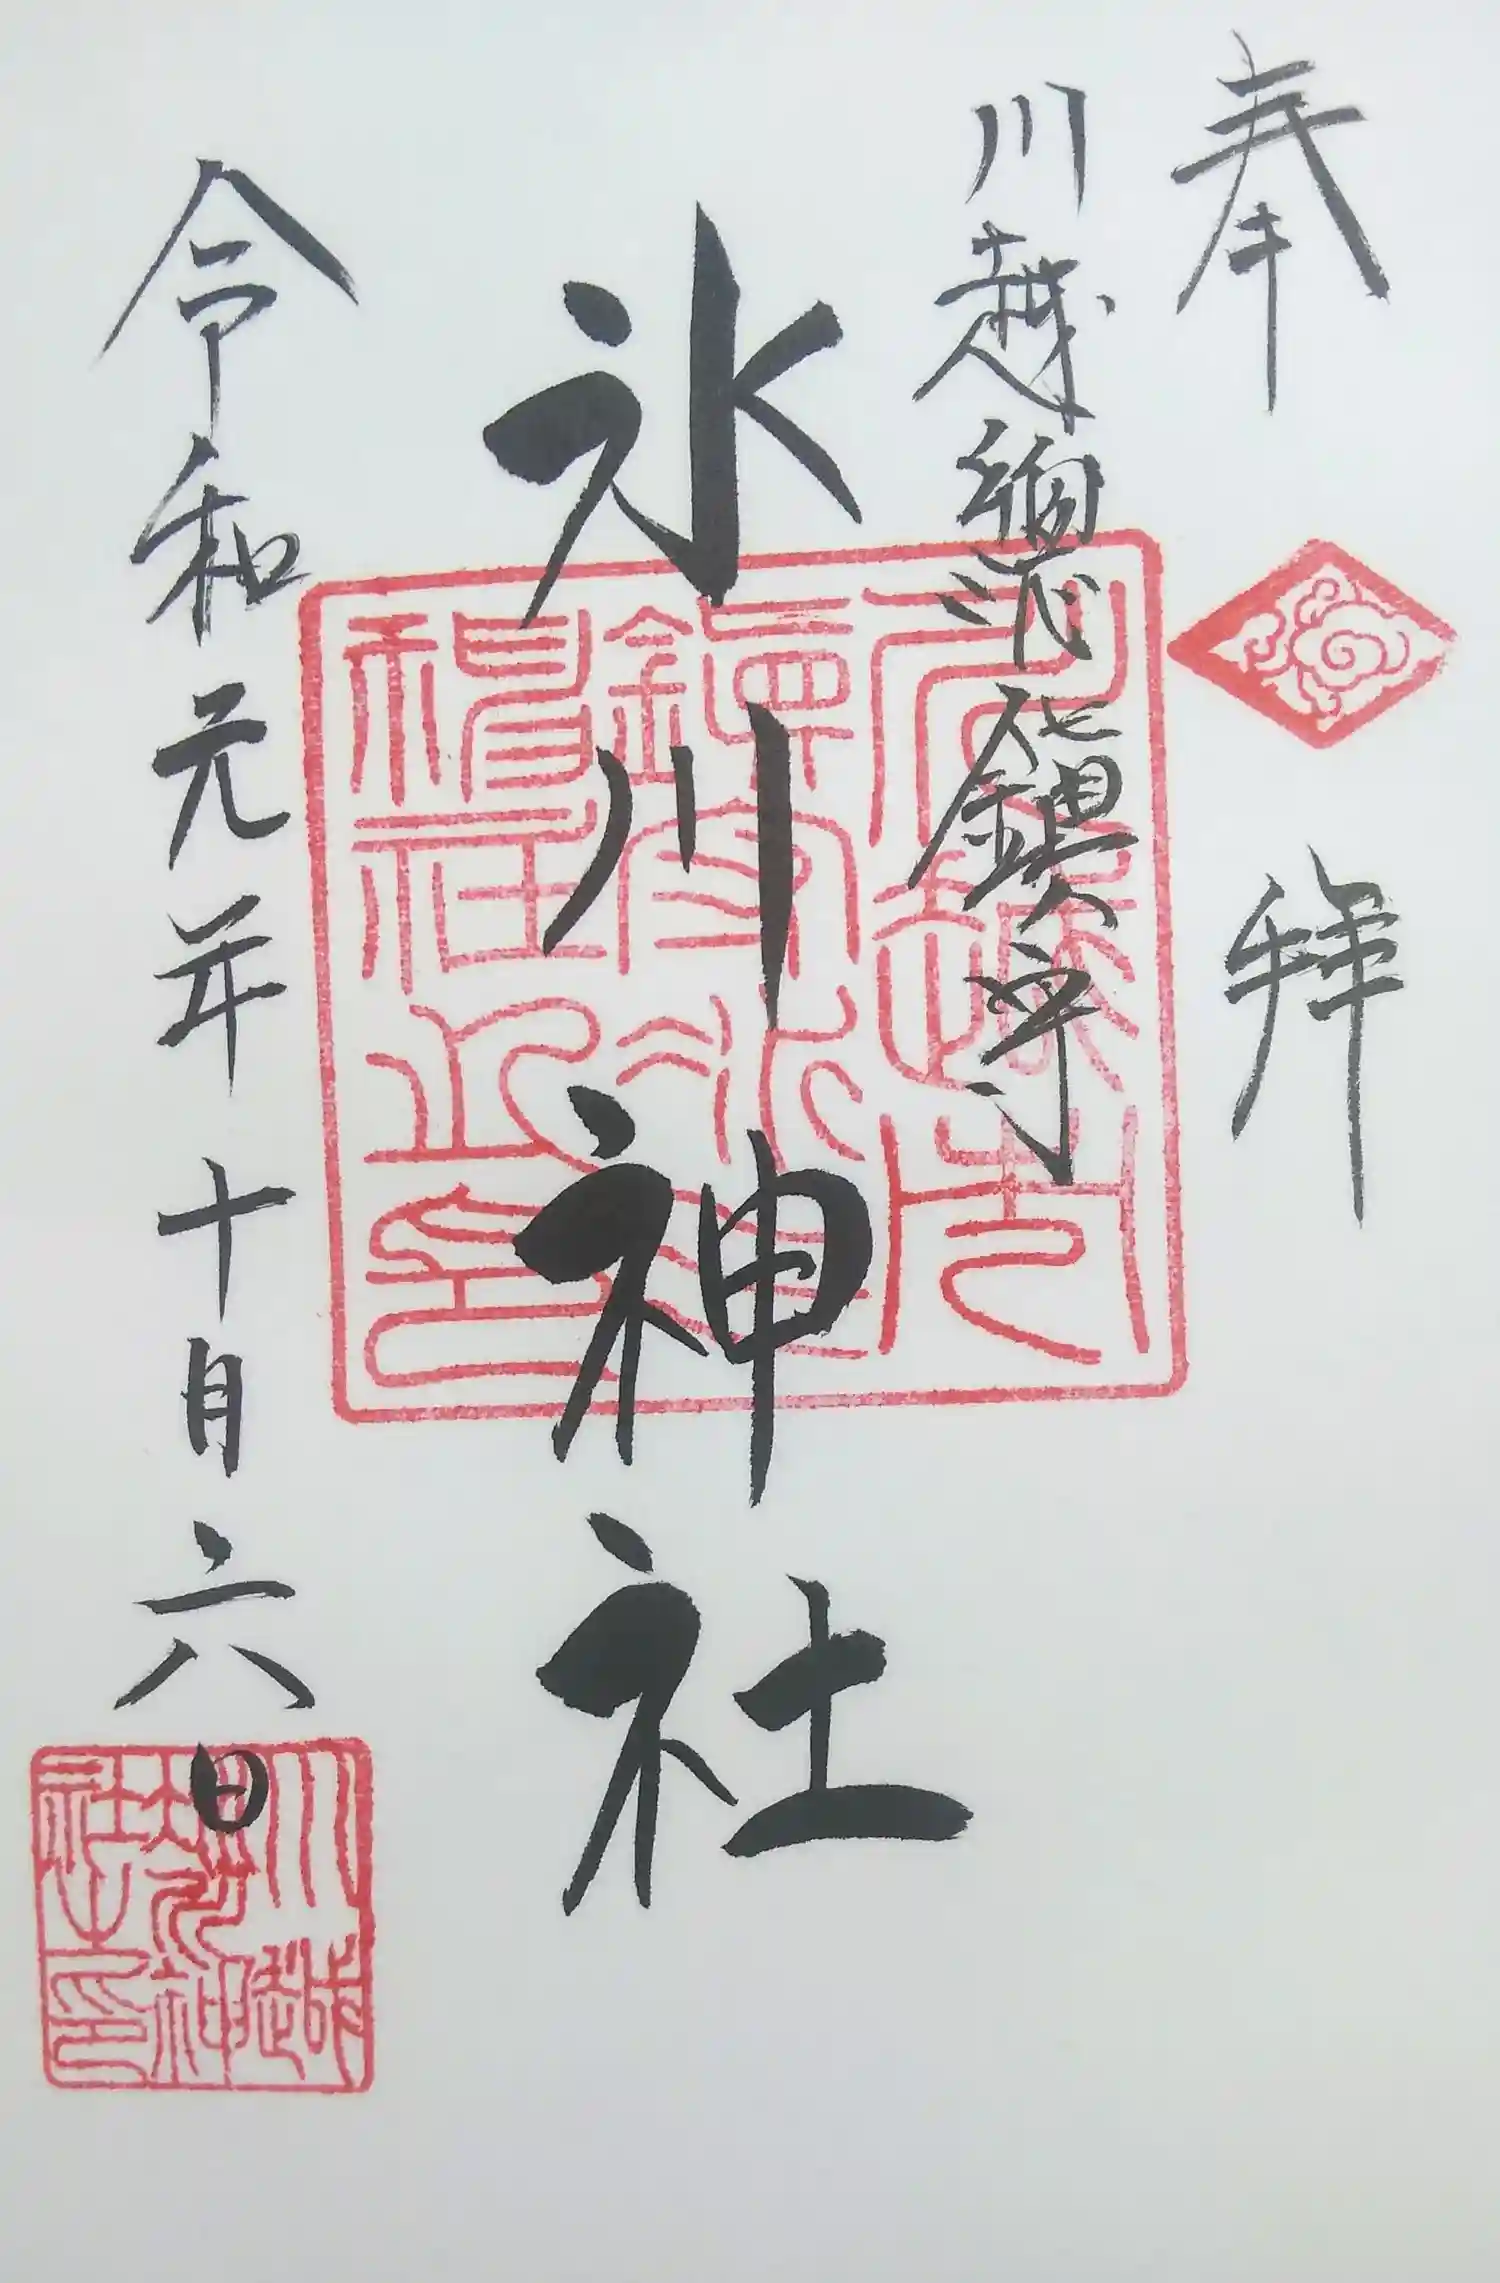 奉拝
川越總鎭守
氷川神社
令和元年十月六日
川越氷川神社之印